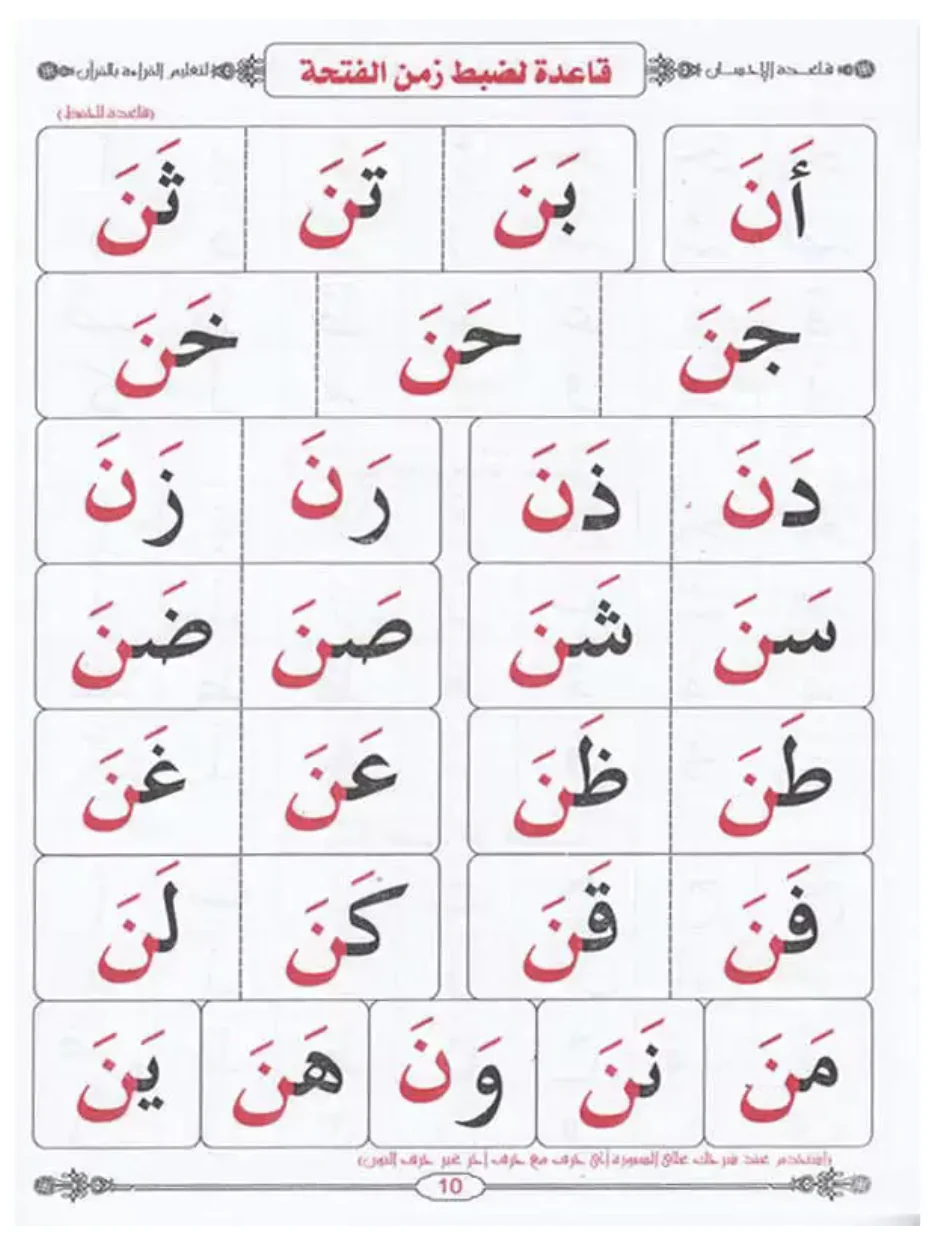 قاعدة الإحسان قاعدة لضبط زمن الفتحة لتعليم القراءة بالقرآن
(قاعدة للحفظ)
أَنَ بَنَ تَنَ ثَنَ
جَنَ حَنَ خَنَ
دَنَ ذَنَ رَنَ زَنَ
سَنَ شَنَ صَنَ ضَنَ
طَنَ ظَنَ عَنَ غَنَ
فَنَ قَنَ كَنَ لَنَ
مَنَ نَنَ وَنَ هَنَ يَنَ
(استخدم عند شرحك على السبورة أى حرف مع حرف آخر غير حرف النون)
10